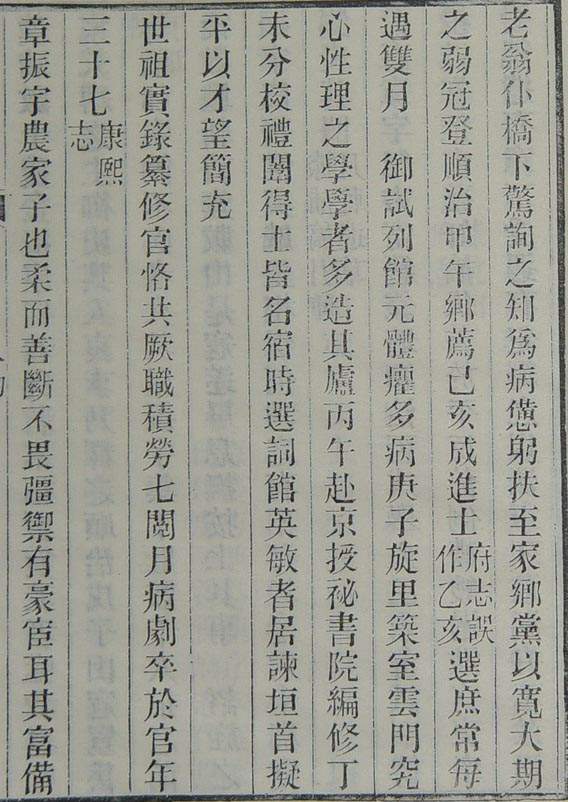 老翁仆橋下驚詢之知爲病憊躬扶至家鄉黨以寬大期
之弱冠登順治甲午鄉薦己亥成進士府志誤作乙亥選庶常每
遇雙月　御試列館元體癯多病庚子旋里築室雲門究
心性理之學學者多造其廬丙午赴京授祕書院編修丁
未分校禮闈得士皆名宿時選詞館英敏者居諫垣首擬
平以才望簡充
世祖實錄纂修官恪共厥職積勞七閱月病劇卒於官年
三十七康熙志
章振宇農家子也柔而善斷不畏彊禦有豪宦耳其富備